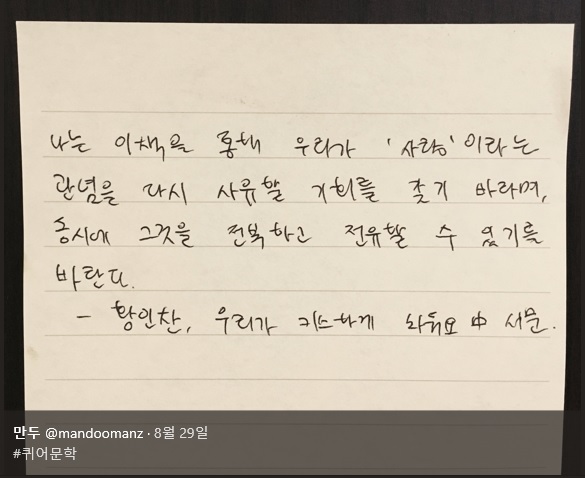 나는 이책을 통해 우리가 '사랑'이라는
관념을 다시 사유할 기회를 찾기 바라며,
동시에 그것을 전복하고 전유할 수 있기를
바란다.
- 황인찬, 우리가 키스하게 놔둬요 中 서문.
만두 @mandoomanz · 8월 29일
#퀴어문학